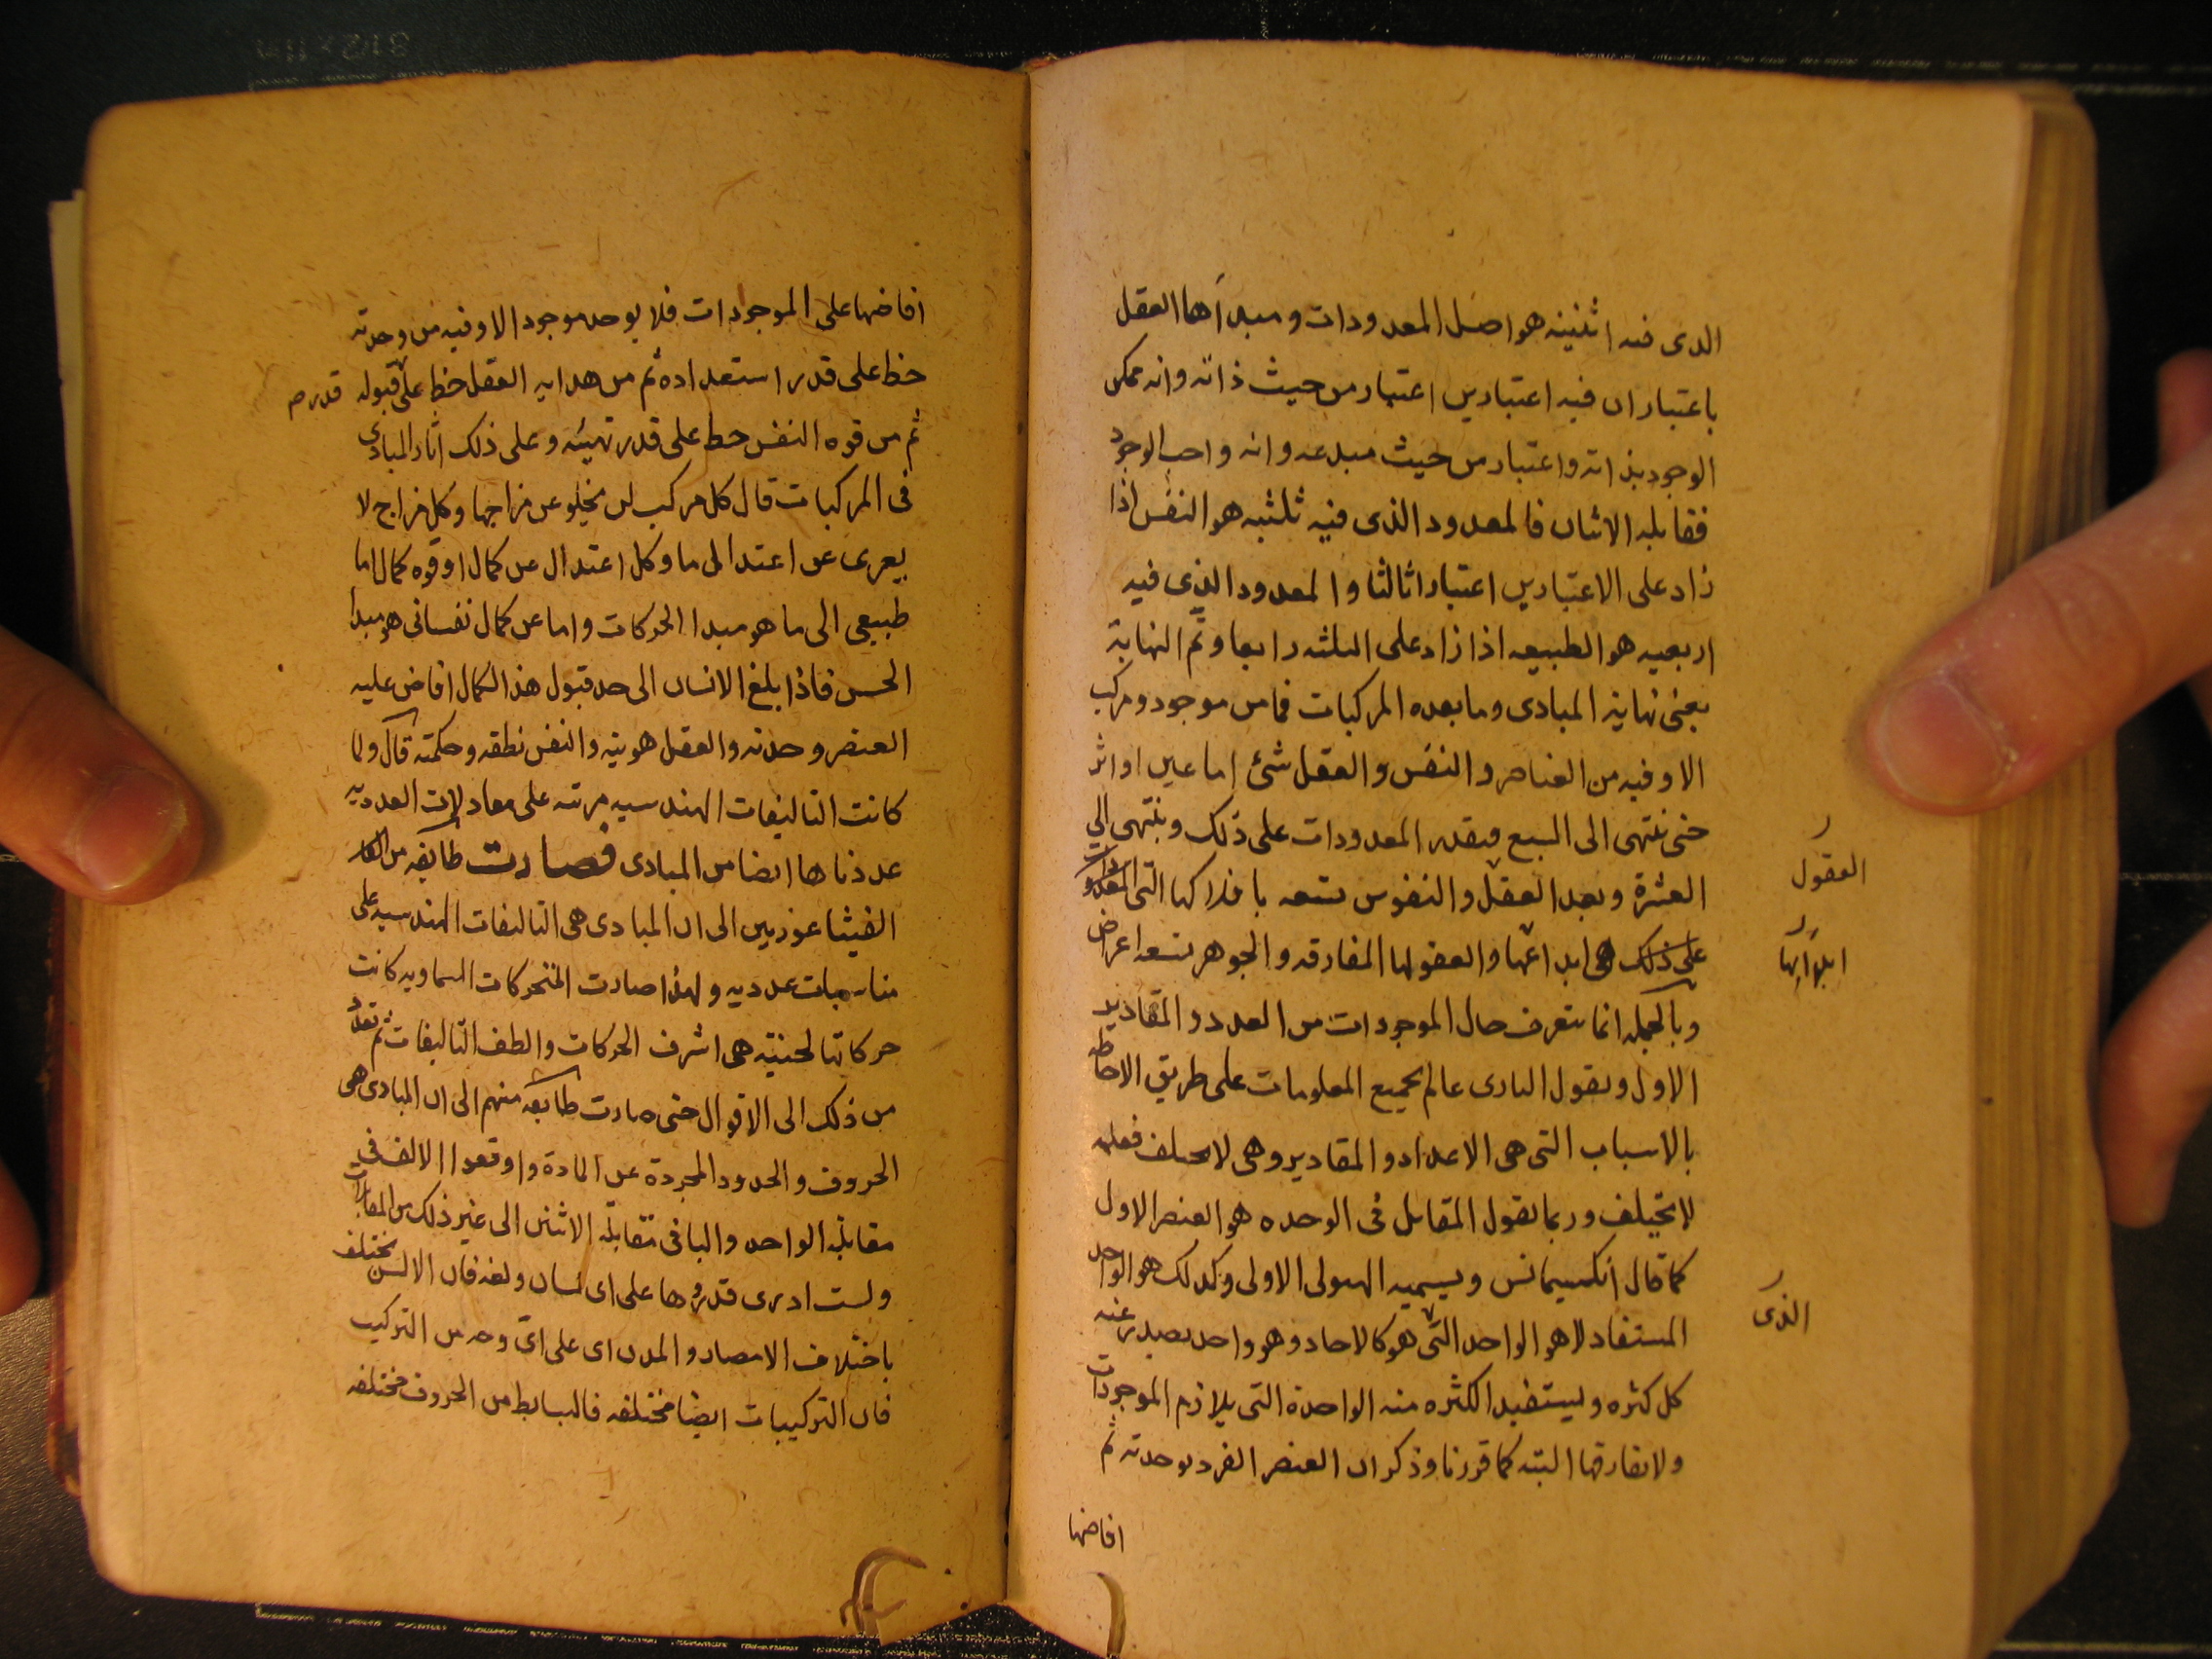 الذى فيه اثنينيه هو اصل المعدودات ومبدأهما العقل
باعتبار ان فيه اعتبارين اعتبار من حيث ذاته وانه ممكن
الوجود بذاته واعتبار من حيث مبدعه وانه واجب الوجود
فقابله الاثنان فالمعدود الذى فيه ثلثيه هو النفس اذا
زاد على الاعتبارين اعتبارا ثالثا والمعدود الذى فيه
اربعيه هو الطبيعه اذا زاد على الثلثه رابعا وثم النهاية
يعنى نهاية المبادى وما بعده المركبات فما من موجود مركب
الا وفيه من العناصر والنفس والعقل شئ اما عين او اثر
حتى ينتهى الى السبع فيقدر المعدودات على ذلك وينتهى الى
العشرة ويعد العقل والنفوس تسعه بافلاكها التى
العقول
على ذلك هى ابداعها والعقولها المفارقه والجوهر تسعه اعراض
ابدانها
وبالجمله انما يتعرف حال الموجودات من العدد والمقادير
الاول ويقول البارى عالم بجميع المعلومات على طريق الاحاطه
بالاسباب التى هى الاعداد والمقادير وهى لا يختلف فعلمه
لا يختلف وربما يقول المقابل فى الوحده هو العنصر الاول
كما قال انكسيمانس ويسميه الهيولى الاولى وكذلك هو الواحد
المستفاد لا هو الواحد التى هو كالاحاد وهو واحد يصدر عنه
الذى
كل كثره ويستفيد الكثره منه الواحدة التى يلازم الموجودات
ولا يفارقها البته كما قررنا وذكر ان العنصر انفرد بوحدته ثم
افاضها
افاضها على الموجودات فلا يوجد موجود الا وفيه من وحدته
حظ على قدر استعداده ثم من هدايه العقل حظ على قبوله
قدر صح
ثم من قوه النفس حظ على قدر تهيئه وعلى ذلك اثار المبادى
فى المركبات قال كل مركب لن يخلو عن مزاجها وكل مزاج لا
يعرى عن اعتدالى ما وكل اعتدال عن كمال او قوه كمال اما
طبيعى الى ما هو مبدا الحركات واما عن كمال نفسانى هو مبدا
الحس فاذا بلغ الانسان الى حد قبول هذا الكمال افاض عليه
العنصر وحدته والعقل هويته والنفس نطقه وحكمته قال ولما
كانت التاليفات الهندسيه مرتبه على معادلات العدديه
عددناها ايضا من المبادى فصارت طايفه من
الفيثاغوريين الى ان المبادى هى التاليفات الهندسيه على
مناسبات عدديه ولهذا صارت المتحركات السماويه كانت
حركاتها لحنيته هى اشرف الحركات والطف التاليفات ثم تعدوا
من ذلك الى الاقوال حتى صارت طايفه منهم الى ان المبادى هى
الحروف والحدود المجردة عن المادة واوقعوا الالف فى
مقابلة الواحد والبا فى مقابلة الاثنين الى غير ذلك من المقابلات
ولست ادرى قدروها على اى لسان ولغه فان الالسن يختلف
باختلاف الامصار والمدن اى على اى وجه من التركيب
فان التركيبات ايضا مختلفه فالبسايط من الحروف مختلفه